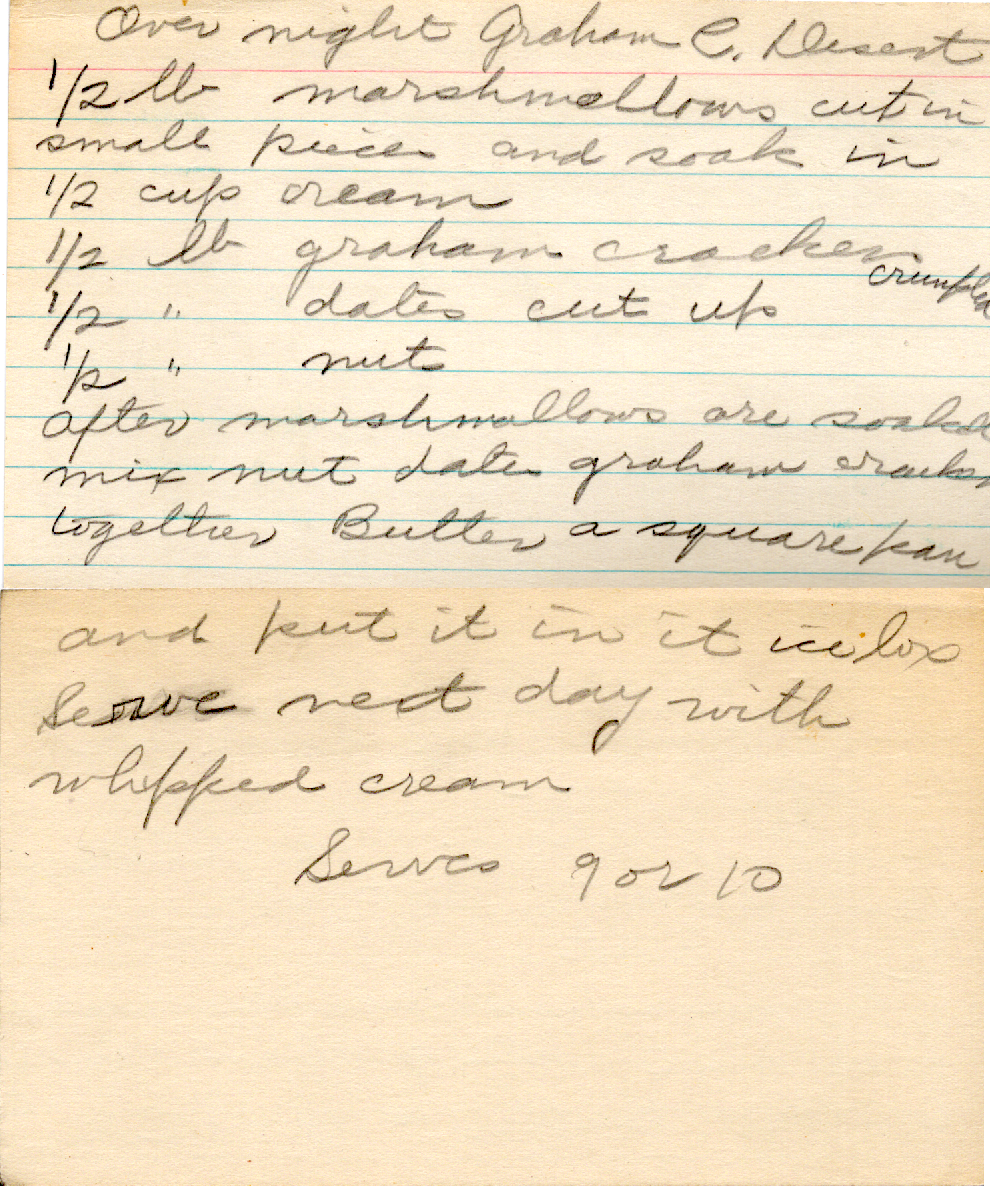 Over night Graham C. Desert
1/2 lb marshmellows cut in
small pieces and soak in
1/2 cup cream
1/2 lb graham cracker
crumpled
1/2 " dates cut up
1/2 " nuts
after marshmallows are soaked
mix nut dates graham cracker
together Butter a square pan
and put it in it icebox
Serve next day with
whipped cream
Serves 9 or 10